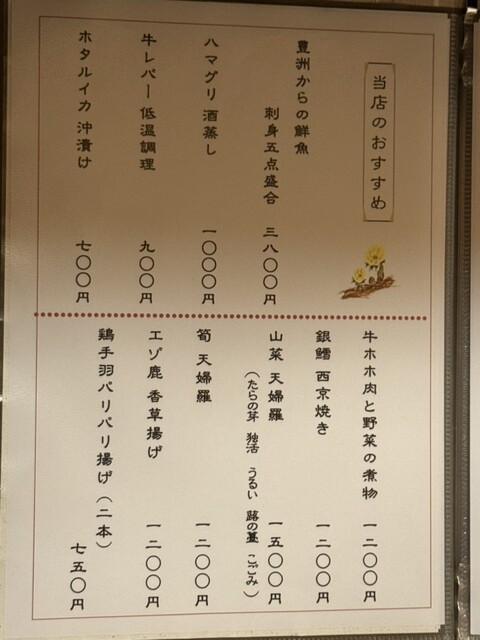 当店のおすすめ
豊洲からの鮮魚
刺身五点盛合 三八〇〇円
ハマグリ 酒蒸し 一〇〇〇円
牛レバー 低温調理 九〇〇円
ホタルイカ 沖漬け 七〇〇円
牛ホホ肉と野菜の煮物 一二〇〇円
銀鱈 西京焼き 一二〇〇円
山菜 天婦羅 一五〇〇円
(たらの芽 独活 うるい 蕗の薹 こごみ)
筍 天婦羅 一二〇〇円
エゾ鹿 香草揚げ 一二〇〇円
鶏手羽パリパリ揚げ(二本) 七五〇円